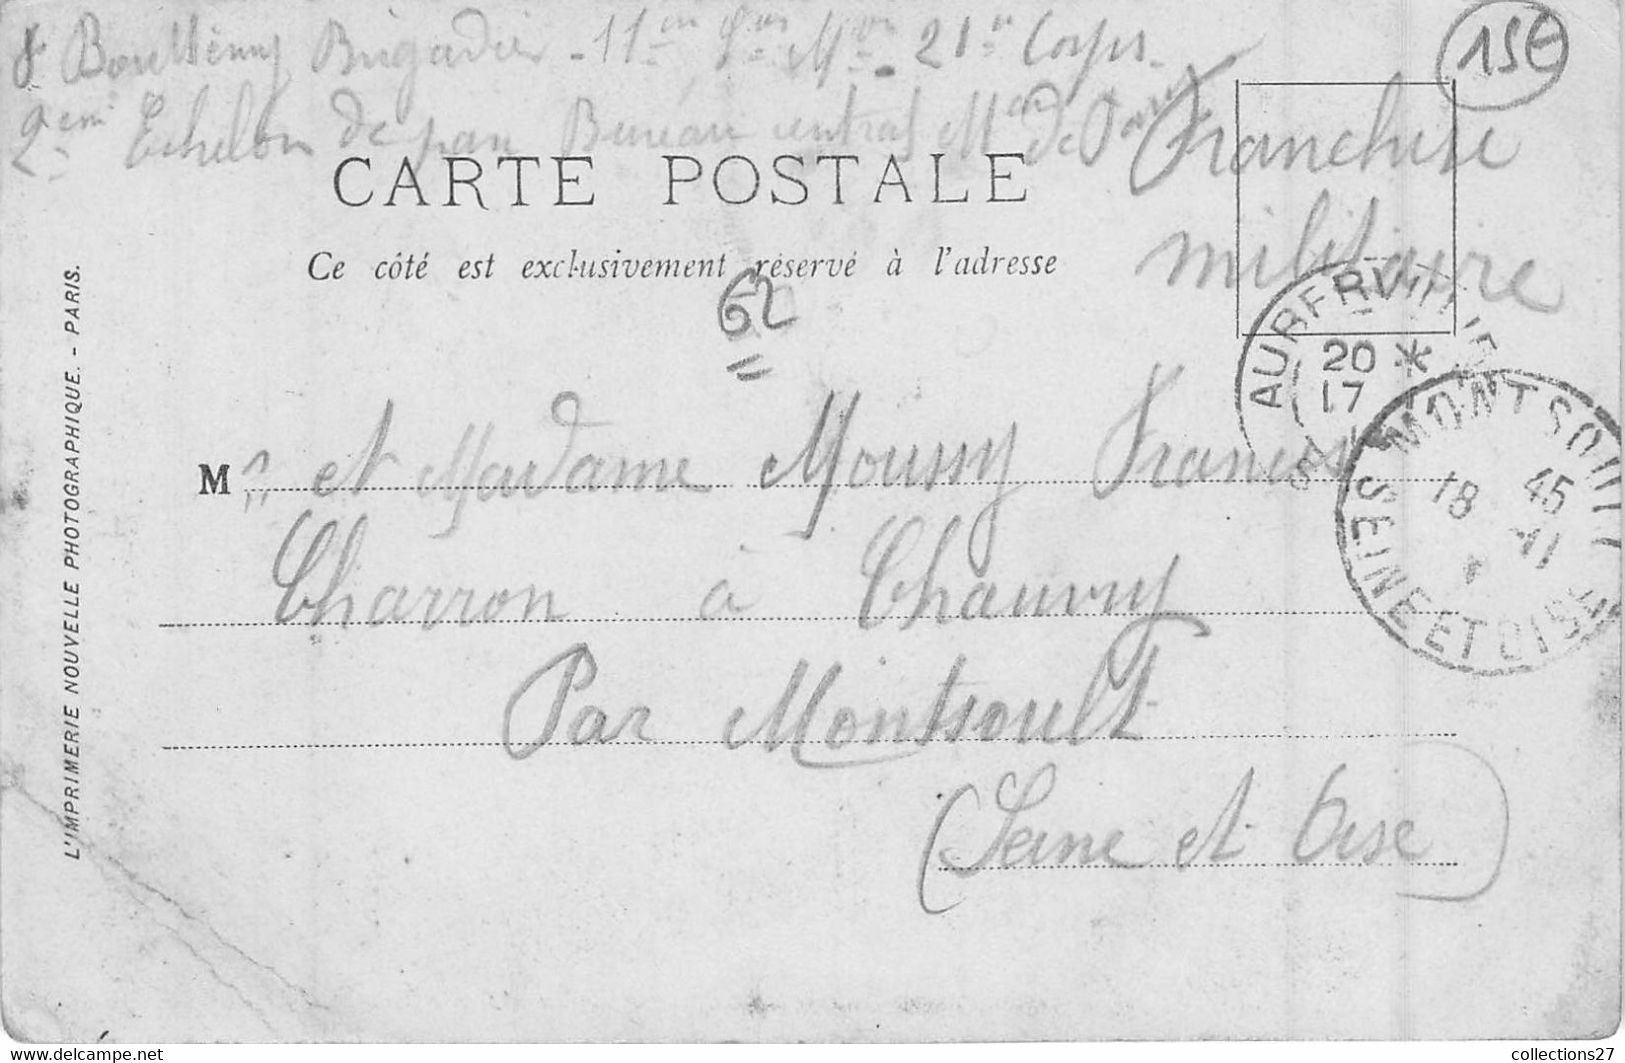 Brigadier - 11 21e Corps
2eme Echelon de parc Bureau central de Paris
Franchise
militaire
15E
CARTE POSTALE
Ce côté est exclusivement réservé à l'adresse
62
AUBERVILLIERS
20 *
17
SEINE
MONTSOULT
18 45
11
SEINE ET OISE
Mr et Madame Moussy Francis
Charron à Chauvry
Par Montsoult
(Seine et Oise)
L'IMPRIMERIE NOUVELLE PHOTOGRAPHIQUE. - PARIS.
www.delcampe.net
collections27